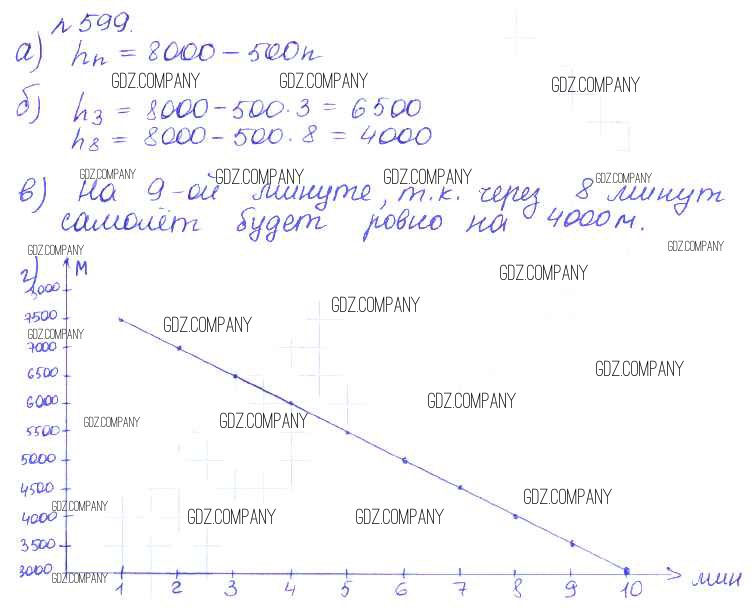 №599.
а) hn = 8000 - 500n
GDZ.COMPANY GDZ.COMPANY GDZ.COMPANY
б) h3 = 8000 - 500·3 = 6500
h8 = 8000 - 500·8 = 4000
GDZ.COMPANY GDZ.COMPANY GDZ.COMPANY GDZ.COMPANY
в) На 9-ой минуте, т.к. через 8 минут
самолёт будет ровно на 4000 м.
GDZ.COMPANY GDZ.COMPANY
г) М
GDZ.COMPANY
8000
GDZ.COMPANY
7500
GDZ.COMPANY
GDZ.COMPANY
7000
GDZ.COMPANY
6500
6000
GDZ.COMPANY
GDZ.COMPANY GDZ.COMPANY
5500
5000
4500
GDZ.COMPANY
GDZ.COMPANY
4000
GDZ.COMPANY GDZ.COMPANY
3500
3000
GDZ.COMPANY
1 2 3 4 5 6 7 8 9 10 мин